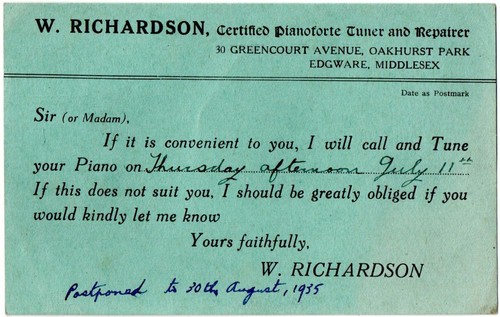 W. RICHARDSON, Certified Pianoforte Tuner and Repairer
30 GREENCOURT AVENUE, OAKHURST PARK
EDGWARE, MIDDLESEX
Date as Postmark
Sir (or Madam),
If it is convenient to you, I will call and Tune
your Piano on Thursday afternoon July 11th
If this does not suit you, I should be greatly obliged if you
would kindly let me know
Yours faithfully,
W. RICHARDSON
Postponed to 30th August, 1935